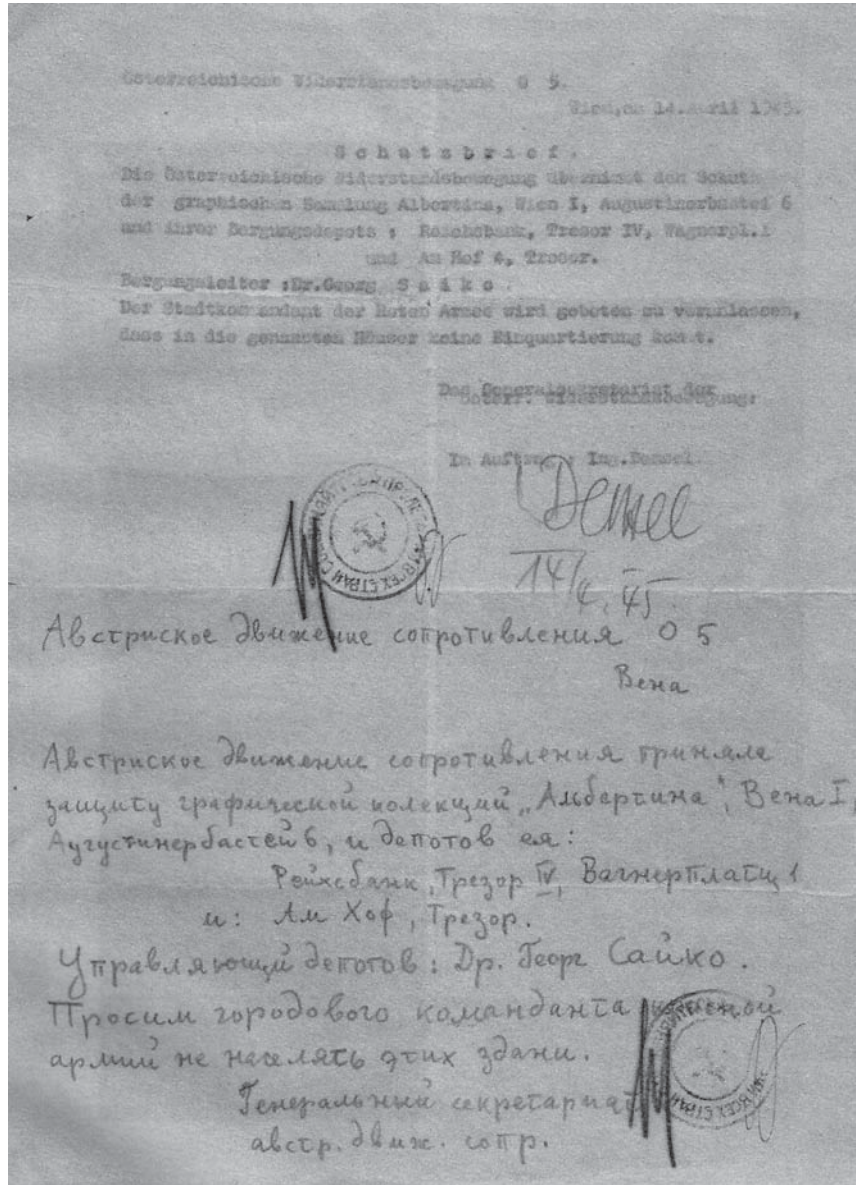 Österreichische Widerstandsbewegung O 5.
Wien, am 14. April 1945.
Schutzbrief.
Die Österreichische Widerstandsbewegung übernimmt den Schutz
der graphischen Sammlung Albertina, Wien I, Augustinerbastei 6
und ihrer Bergungsdepots : Reichsbank, Tresor IV, Wagnerpl.1
und Am Hof 4, Tresor.
Bergungsleiter :Dr.Georg Saiko
Der Stadtkommandant der Roten Armee wird gebeten zu veranlassen,
dass in die genannten Häuser keine Einquartierung kommt.
Das Generalsekretariat der
österr. Widerstandsbewegung:
In Auftrag : Ing.
14/4. 45.
ВСЕХ СТРАН
Австриское движение сопротивления О 5
Вена
Австриское движение сопротивления приняле
защиту графической колекций „Альбертина", Вена I,
Аугустинербастей 6, и депотов ея:
Рейхсбанк, Трезор IV, Вагнерплатц 1
и: Ам Хоф, Трезор.
Управляющий депотов: Др. Георг Сайко.
Просим городового команданта
армий не населять этих здани.
Генеральный секретариат
австр. движ. сопр.
ВСЕХ СТРАН